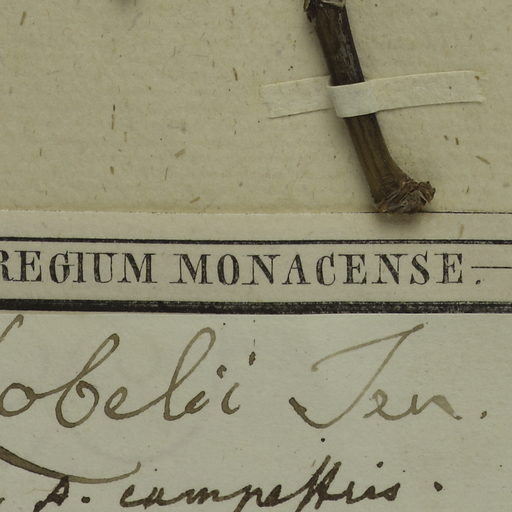 REGIUM MONACENSE.
Lobelii Ten.
s. campestris.